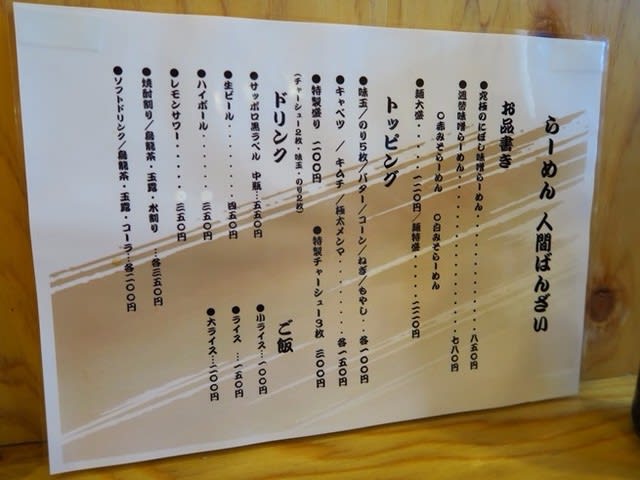 らーめん 人間ばんざい
お品書き
●究極のにぼし味噌らーめん・・・・・・・・・・八五〇円
●週替味噌らーめん・・・・・・・・・・・・・・七八〇円
○赤みそらーめん ○白みそらーめん
●麺大盛・・・・・一二〇円/麺特盛・・・・二二〇円
トッピング
●味玉/のり5枚/バター/コーン/ねぎ/もやし・・・各一〇〇円
●キャベツ / キムチ / 極太メンマ・・・・・・・・各一五〇円
●特製盛り 二〇〇円 ●特製チャーシュー3枚 三〇〇円
(チャーシュー2枚・味玉・のり2枚)
ドリンク
●サッポロ黒ラベル 中瓶…五五〇円
●生ビール・・・・・・・・四五〇円
●ハイボール・・・・・・・三五〇円
●レモンサワー・・・・・・三五〇円
●焼酎割り/烏龍茶・玉露・水割り …各三五〇円
●ソフトドリンク/烏龍茶・玉露・コーラ…各二〇〇円
ご飯
●小ライス…一〇〇円
●ライス …一五〇円
●大ライス…二〇〇円